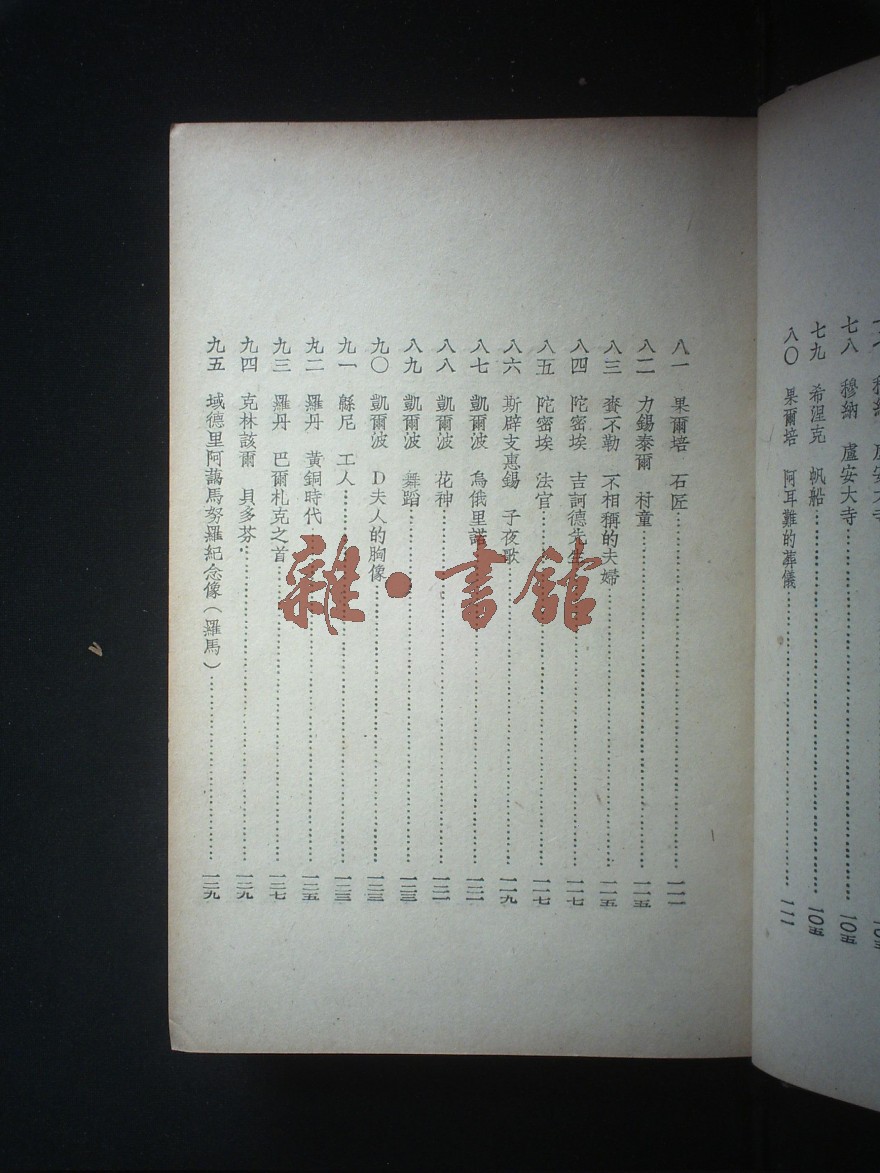 盧安大寺
七八　穆納　盧安大寺……一〇五
七九　希涅克　帆船……一〇五
八〇　果爾培　阿耳難的葬儀……一一一
八一　果爾培　石匠……一一一
八二　力錫泰爾　村童……一一五
八三　賚不勒　不相稱的夫婦……一一五
八四　陀密埃　吉訶德先生……一一七
八五　陀密埃　法官……一一七
八六　斯辟支惠錫　子夜歌……一一九
八七　凱爾波　烏俄里諾……一二一
八八　凱爾波　花神……一二一
八九　凱爾波　舞蹈……一二三
九〇　凱爾波　D夫人的胸像……一二三
九一　縣尼　工人……一二三
九二　羅丹　黃銅時代……一二五
九三　羅丹　巴爾札克之首……一二七
九四　克林該爾　貝多芬……一二九
九五　域德里阿藹馬努羅紀念像（羅馬）……一二九
雜·書館